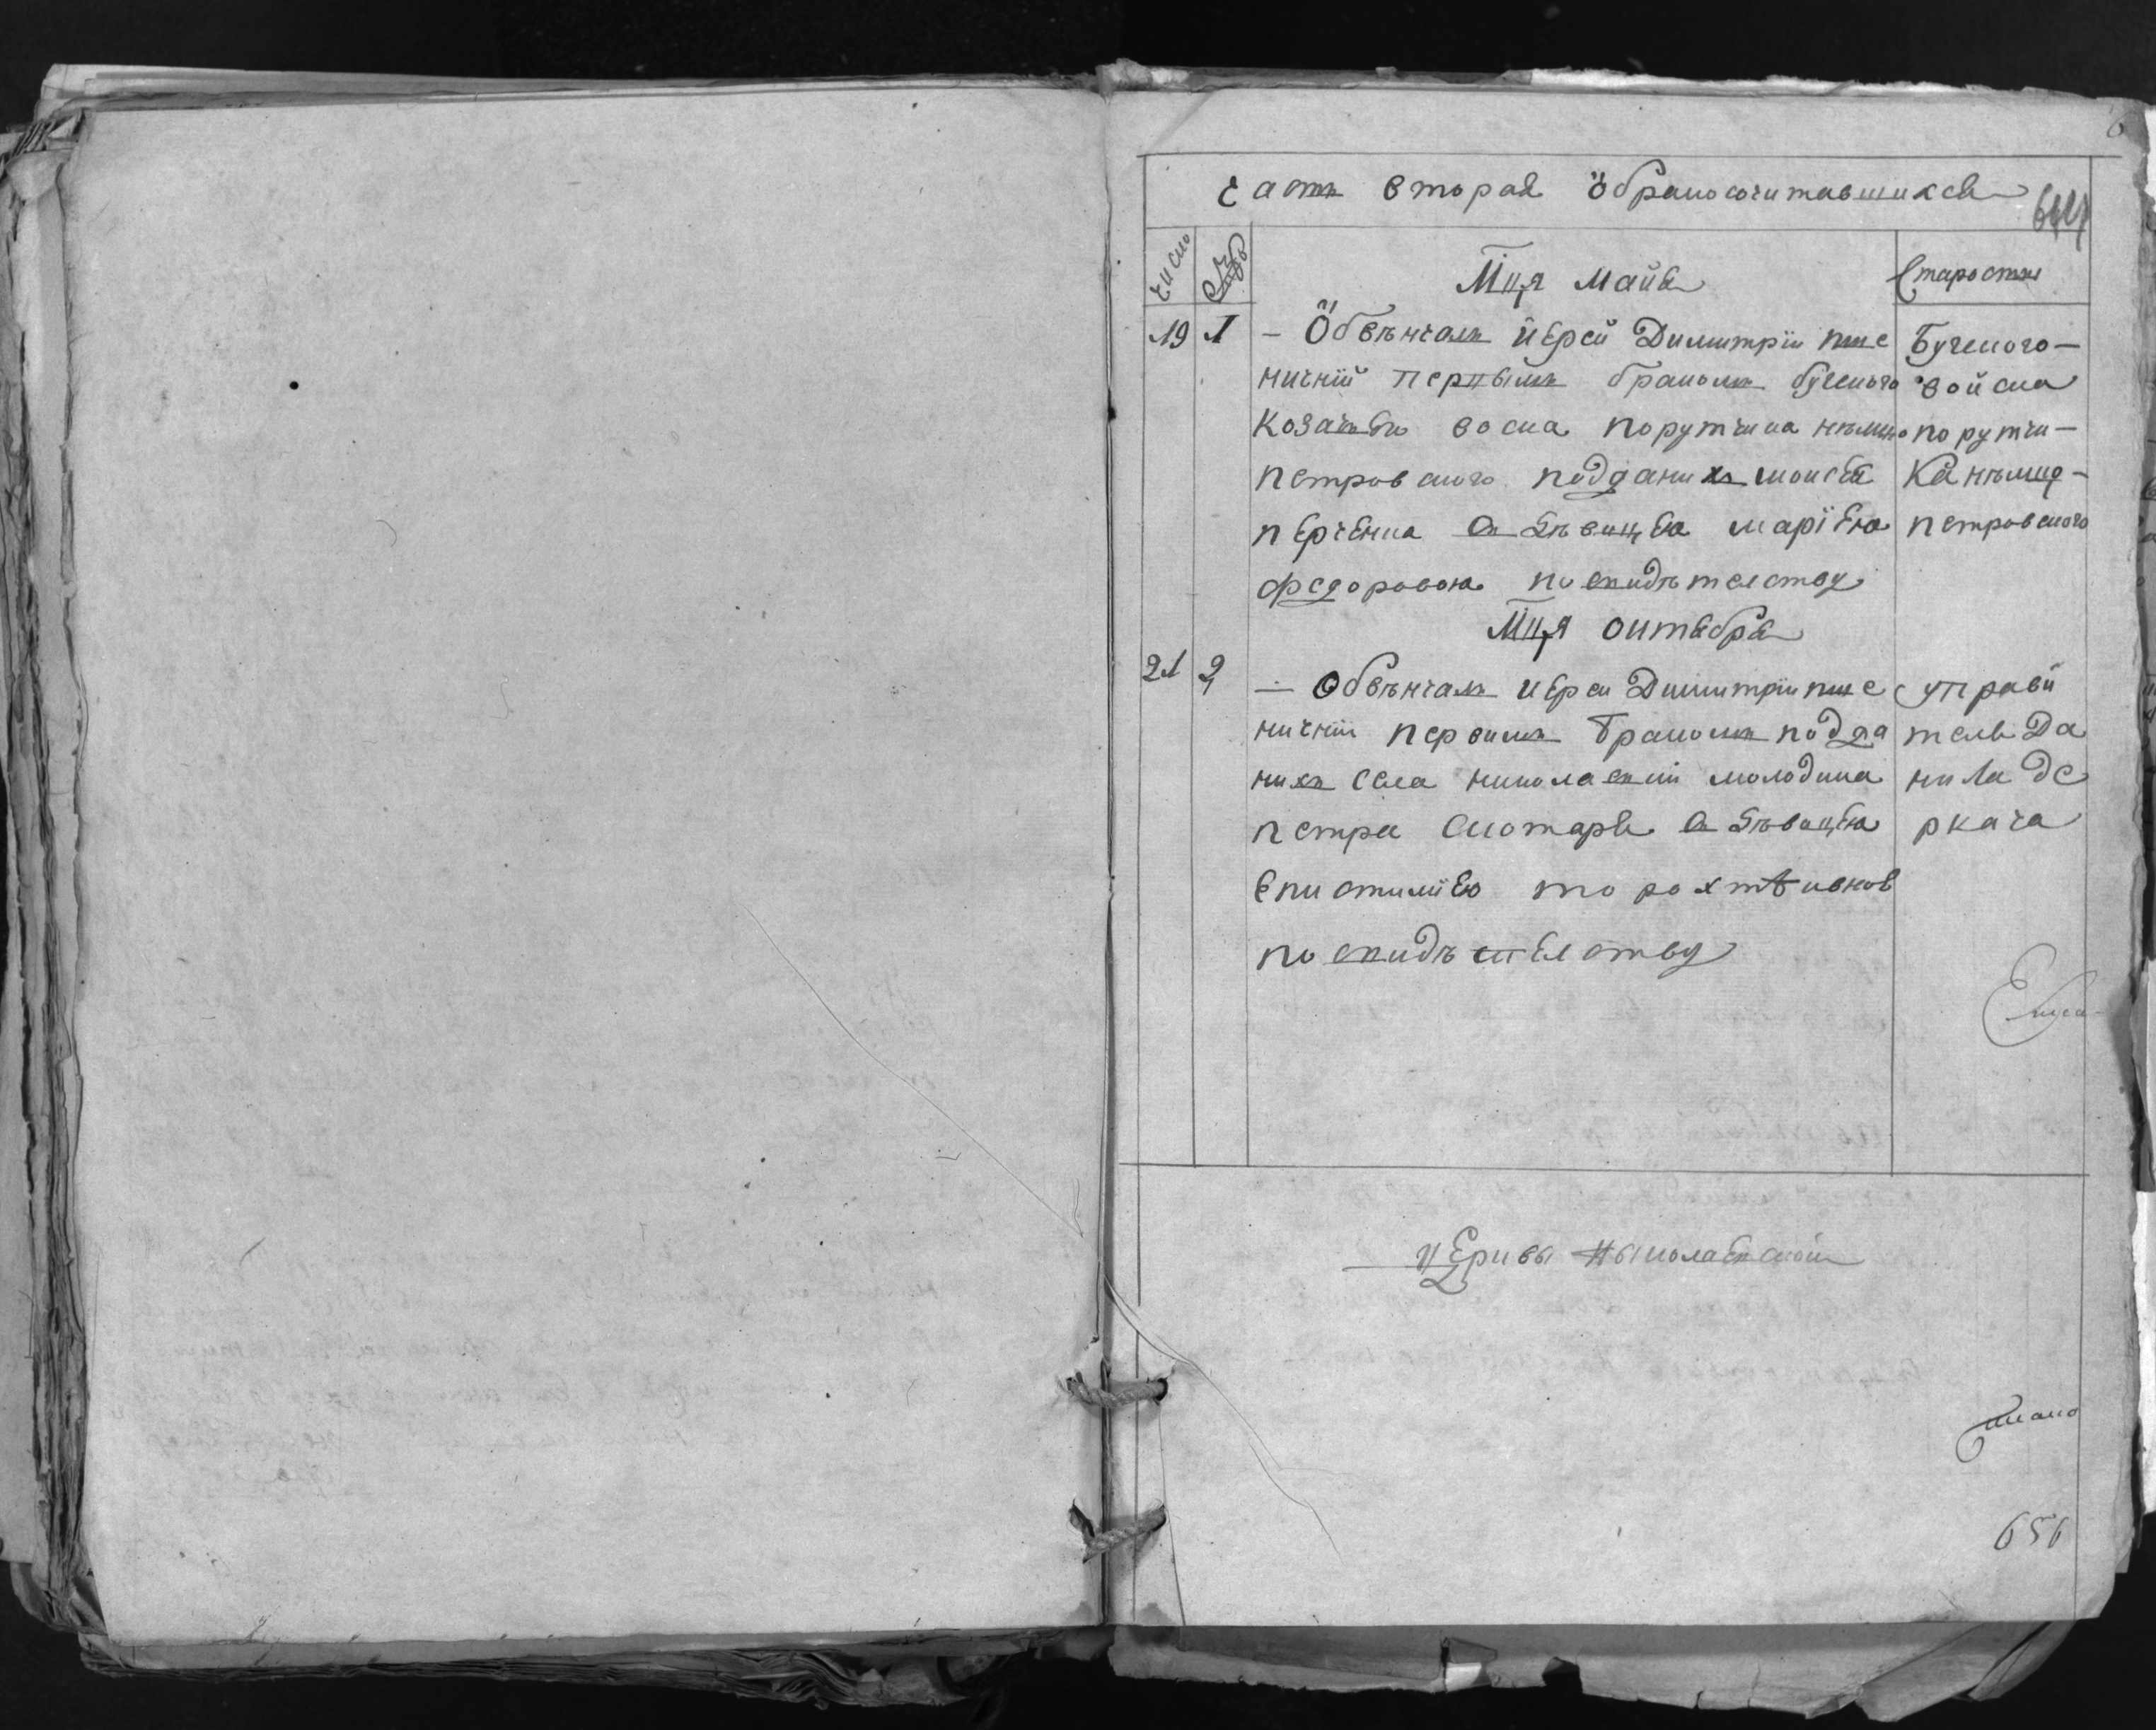 Часть вторая ö бракосочитавшихся
число
Мця Маия
Старости
19 1 – Öбвѣнчалъ иерей Димитрїи пше
ничнїй первымъ бракомъ бугского
козачого воска порутчика
петровского подданихъ моисея
перченка съ дѣвицею марїею
федоровою по свидѣтелству
Бугского –
войска
порутчи –
ка
петровского
Мця октября
21 2 – Обвѣнчалъ иереи Димитрїи пше
ничнїи первимъ бракомъ подда
нихъ села николаевки молодика
петра слюсаря съ дѣвицею
епистимїею
по свидѣтелству
управи
тель Да
нила де
ркача
церквы Ныколаевской
656